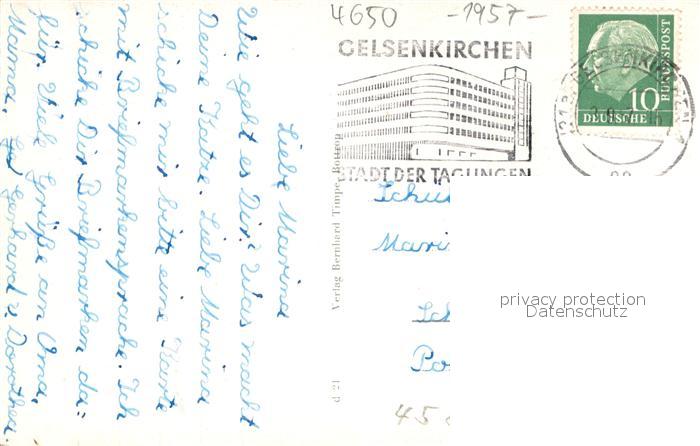 Liebe Marina
Wie geht es Dir? Was macht
Deine Katze. Liebe Marina
schicke mir bitte eine Karte
mit Briefmarkensprache. Ich
schicke Dir Briefmarken da=
für. Viele Grüße an Oma,
Mama, Gerhard u Dorothea
4650 -1957-
GELSENKIRCHEN
STADT DER TAGUNGEN
DEUTSCHE
BUNDESPOST
10
Verlag Bernhard Timpe, Bottrop
d 21
Schü
Mari
Sch
Po
45
privacy protection
Datenschutz